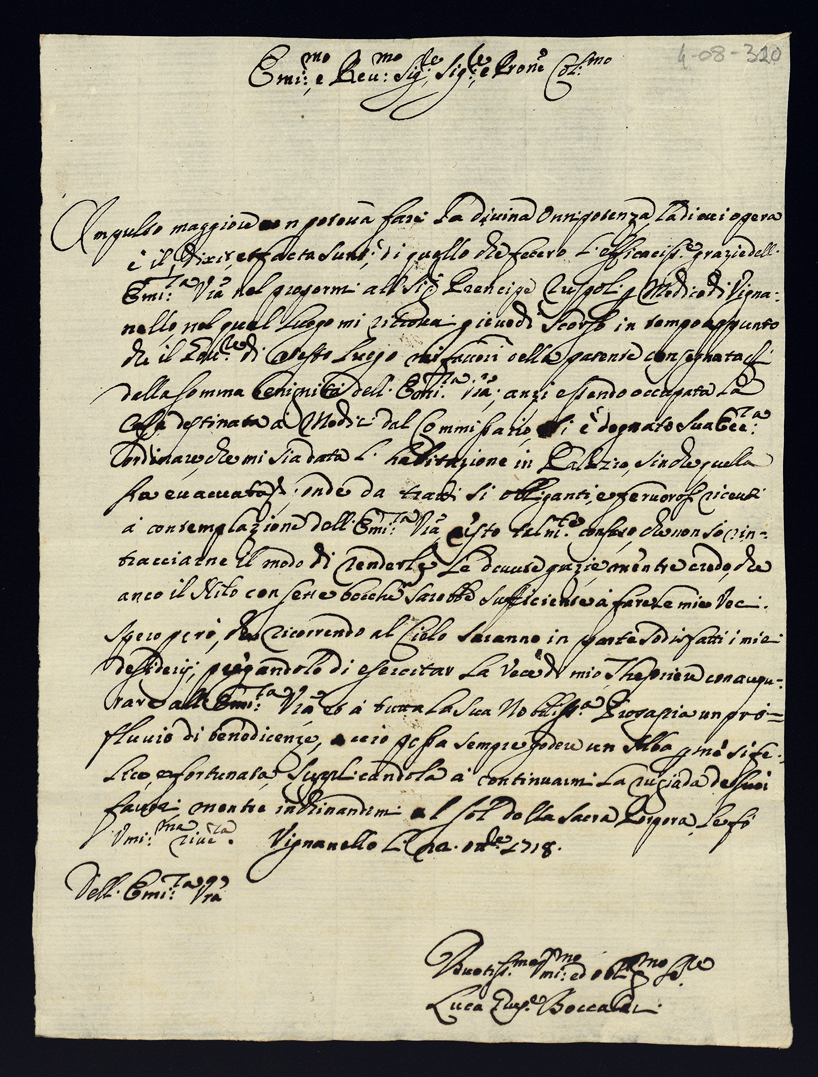 4-08-320
Emi:mo e Reu:mo Sig:re, Sig:re e Prone Col:mo
Impulso maggiore non poteua fare La diuina Onnipotenza, di cui opera
è il dixit, et facta sunt, di quello che fecero l'efficaciss:e grazie dell'
Emi:Ta Vra nel propormi all Sig: Prencipe Ruspoli p Medico di Vigna-
nello, nel qual Luogo mi ritrouai giouedì scorso in tempo appunto
che il di detto Luogo mi fauorì della patente consegnata
della somma benignità dell' Emi:Ta Vra; anzi essendo occupata La
Casa destinata a Medici dal Commissario, si è degnato Sua Ecc:Za
ordinare, che mi sia data l'habitazione in Palazzo, sin che quella
sia euacuata; onde da tratti sì obliganti, e feruorosi riceuti
à contemplazione dell' Emi:Ta Vra resto talm:te confuso che non sò rin-
tracciarne il modo di renderle Le douute grazie, mentre credo, che
anco il Nilo con sette bocche sarebbe sufficiente à fare Le mie Veci.
Spero però, che ricorrendo al Cielo saranno in parte sodisfatti i miei
desiderij, pregandolo di esercitar La Vece di mio Thesoriere con augu-
rare all' Emi:Ta Vra et à tutta La Sua Nobiliss:a Prosapia un pro-
fluuio di benedicenze, acciò possa sempre godere un Alba p me sì fe-
lice, e fortunata, Supplicandola à continuarmi La rugiada de suoi
fauori mentre inchinandomi al Sol della Sacra Porpora, Le fò
Vmi:ma riue:za. Vignanello Li 1718.
Dell' Emi:Ta Vra
Deuotiss:mo Vmi:mo ed obl:mo Se:re
Luca Boccali